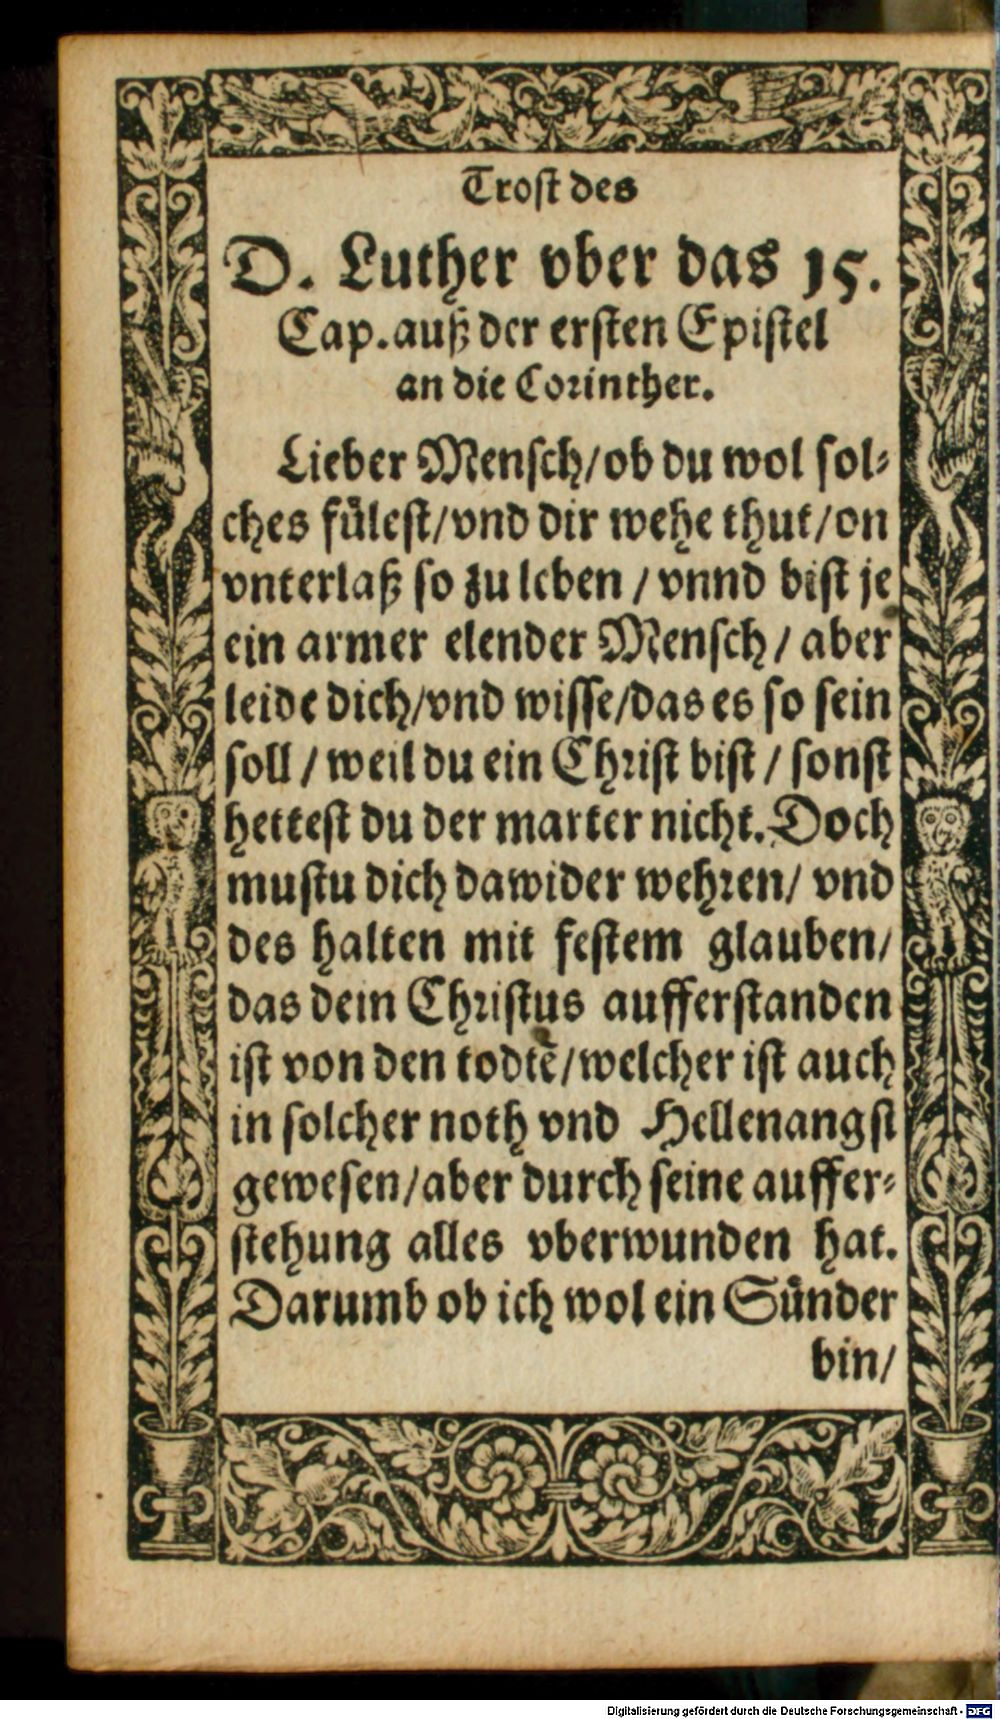 Trost des
D. Luther vber das 15.
Cap. auß der ersten Epistel
an die Corinther.
Lieber Mensch/ob du wol sol-
ches fülest/vnd dir wehe thut/on
vnterlaß so zu leben / vnnd bist je
ein armer elender Mensch / aber
leide dich/vnd wisse/das es so sein
soll / weil du ein Christ bist / sonst
hettest du der marter nicht. Doch
mustu dich dawider wehren/ vnd
des halten mit festem glauben/
das dein Christus aufferstanden
ist von den todtē/welcher ist auch
in solcher noth vnd Hellenangst
gewesen/aber durch seine auffer-
stehung alles vberwunden hat.
Darumb ob ich wol ein Sünder
bin/
Digitalisierung gefördert durch die Deutsche Forschungsgemeinschaft - DFG